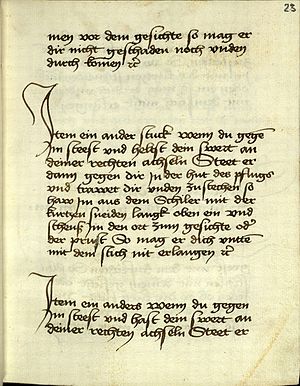 23
men vor dem gesichte so mag er
dir nicht geschaden noch vnden
durch komen ꝛc
Item ein ander stuck wenn du gege
im steest vnd heltst dein swert an
deiner rechten achseln Steet er
dann gegen dir in der hut des pflugs
vnd trawet dir vnden zustechen so
haw im aus dem Schiler mit der
kurtzen sneiden langk oben ein vnd
scheuß im den ort zum gesichte od
der prust So mag er dich vnten
mit dem stich nit erlangen ꝛc
Item ein anders wenn du gegen
im steest vnd hast dein swert an
deiner rechten achseln Steet er